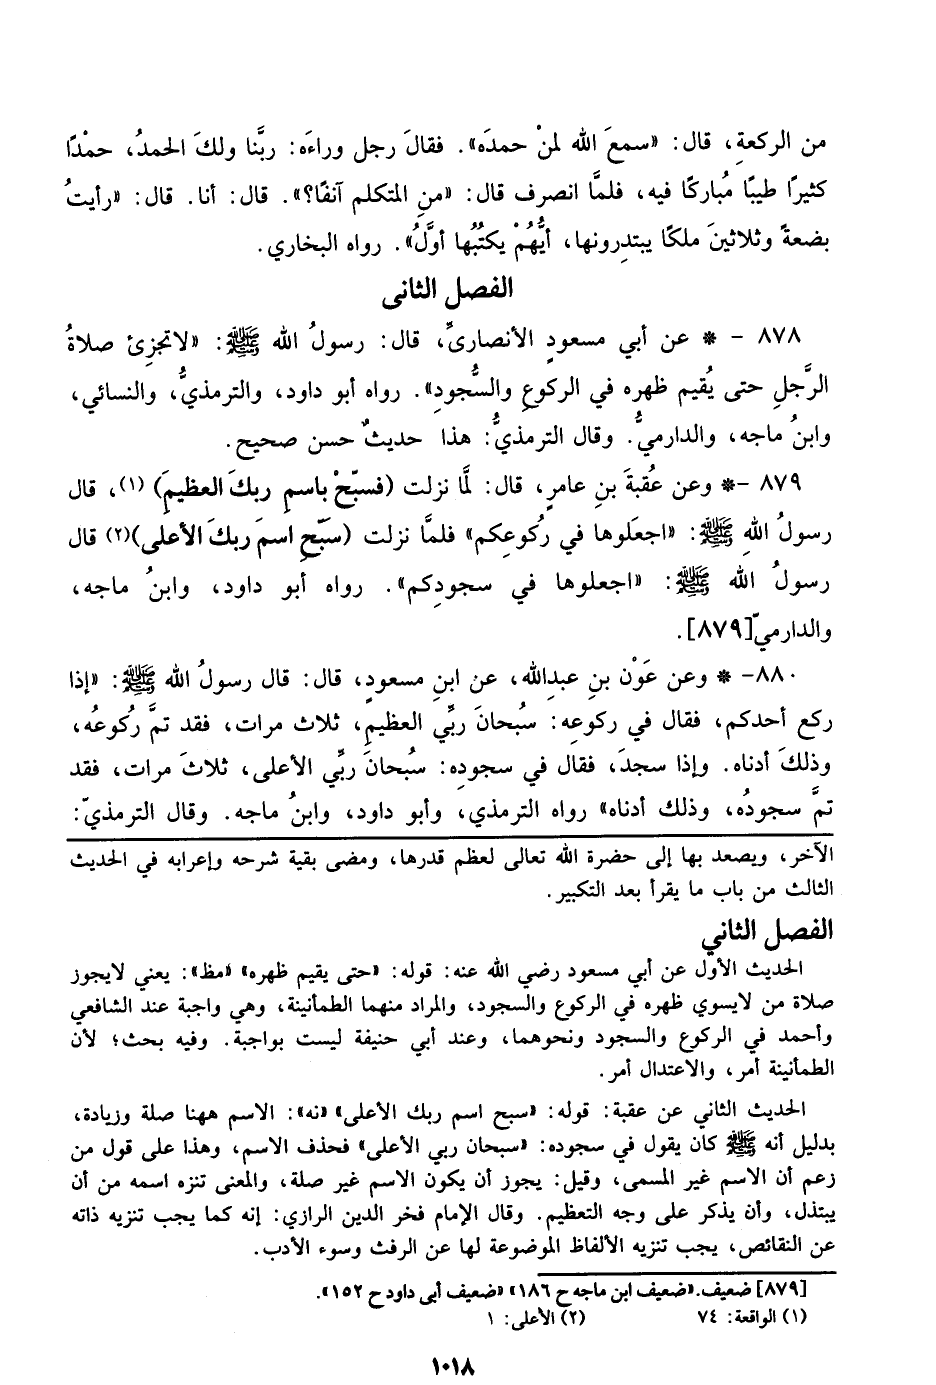 من الركعةِ، قال: «سمعَ الله لمنْ حمدَه». فقالَ رجل وراءَه: ربَّنا ولكَ الحمدُ، حمْدًا
كثيرًا طيبًا مُباركًا فيه، فلمَّا انصرف قال: «منِ المتكلم آنفًا؟». قال: أنا. قال: «رأيتُ
بضعةً وثلاثينَ ملكًا يبتدِرونها، أيُّهُمْ يكتُبُها أوَّلُ». رواه البخاري.
الفصل الثانى
٨٧٨ – * عن أبي مسعودٍ الأنصاريِّ، قال: رسولُ الله ﷺ: «لاتجزِئ صلاةُ
الرَّجلِ حتى يُقيم ظهره في الركوعِ والسُّجودِ». رواه أبو داود، والترمذيُّ، والنسائي،
وابنُ ماجه، والدارميُّ. وقال الترمذيُّ: هذا حديثٌ حسن صحيح.
٨٧٩ –* وعن عُقبةَ بنِ عامرٍ، قال: لمَّا نزلت (فسبّحْ باسمِ ربكَ العظيمَ) (١)، قال
رسولُ اللهِ ﷺ: «اجعَلوها في رُكوعِكم» فلمَّا نزلت (سَبّحِ اسمَ ربكَ الأعلى)(٢) قال
رسولُ الله ﷺ: «اجعلوها في سجودِكم». رواه أبو داود، وابنُ ماجه،
والدارميّ[٨٧٩].
٨٨٠– * وعن عَوْن بنِ عبدِالله، عن ابنِ مسعودٍ، قال: قال رسولُ الله ﷺ: «إذا
ركع أحدكم، فقال في ركوعِه: سُبحانَ ربِّي العظيمِ، ثلاث مرات، فقد تمَّ رُكوعُه،
وذلكَ أدناه. وإذا سجدَ، فقال في سجودِه: سُبحانَ ربِّي الأعلى، ثلاثَ مرات، فقد
تمَّ سجودُه، وذلك أدناه» رواه الترمذي، وأبو داود، وابنُ ماجه. وقال الترمذيّ:
الآخر، ويصعد بها إلى حضرة الله تعالى لعظم قدرها، ومضى بقية شرحه وإعرابه في الحديث
الثالث من باب ما يقرأ بعد التكبير.
الفصل الثاني
الحديث الأول عن أبي مسعود رضي الله عنه: قوله: «حتى يقيم ظهره» «مظ»: يعني لايجوز
صلاة من لايسوي ظهره في الركوع والسجود، والمراد منهما الطمأنينة، وهي واجبة عند الشافعي
وأحمد في الركوع والسجود ونحوهما، وعند أبي حنيفة ليست بواجبة. وفيه بحث؛ لأن
الطمأنينة أمر، والاعتدال أمر.
الحديث الثاني عن عقبة: قوله: «سبح اسم ربك الأعلى» «نه»: الاسم ههنا صلة وزيادة،
بدليل أنه ﷺ كان يقول في سجوده: «سبحان ربي الأعلى» فحذف الاسم، وهذا على قول من
زعم أن الاسم غير المسمى، وقيل: يجوز أن يكون الاسم غير صلة، والمعنى تنزه اسمه من أن
يبتذل، وأن يذكر على وجه التعظيم. وقال الإمام فخر الدين الرازي: إنه كما يجب تنزيه ذاته
عن النقائص، يجب تنزيه الألفاظ الموضوعة لها عن الرفث وسوء الأدب.
[٨٧٩] ضعيف. «ضعيف ابن ماجه ح ١٨٦» «ضعيف أبى داود ح ١٥٢».
(١) الواقعة: ٧٤ (٢) الأعلى: ١
١٠١٨